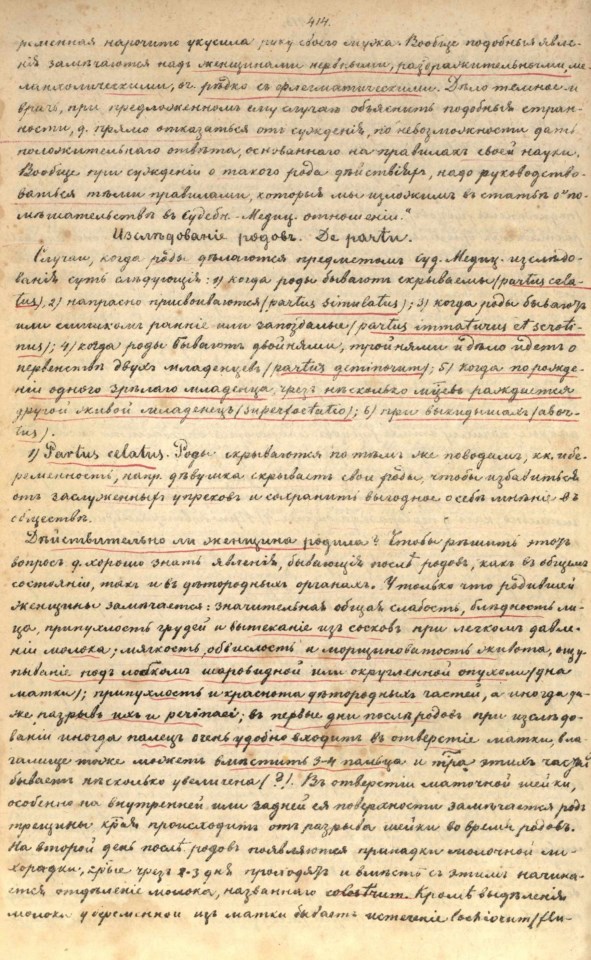 414.
ременная нарочито укусила руку своего мужа. Вообще подобныя явле-
нія замѣчаются надъ женщинами нервными, раздражительными, ме-
ланхолическими, оч. рѣдко съ флегматическими. Дѣло темное и
врачъ, при предложенномъ ему случаѣ объяснить подобныя стран-
ности, д. прямо отказаться отъ сужденія, по невозможности дать
положительнаго отвѣта, основаннаго на правилахъ своей науки.
Вообще при сужденіи о такого рода дѣйствіяхъ, надо руководство-
ваться тѣми правилами, которыя мы изложимъ въ статьѣ о "по-
мѣшательствѣ въ Судебн.-Медиц. отношеніи."
Изслѣдованіе родовъ. De partu.
Случаи, когда роды дѣлаются предметомъ Суд. Медиц. изслѣдо-
ванія суть слѣдующія: 1) когда роды бываютъ скрываемы (partus cela-
tus), 2) напрасно присвоиваются (partus simulatus); 3) когда роды бываютъ
или слишкомъ ранніе или запоздалые (partus immaturus et seroti-
nus); 4) когда роды бываютъ двойнями, тройнями и дѣло идетъ о
первенствѣ двухъ младенцевъ (partus geminorum); 5) когда по рожде-
ніи одного зрѣлаго младенца, чрезъ нѣсколько мѣсяцевъ раждается
другой живой младенецъ (superfoetatio); 6) при выкидышахъ (abor-
tus).
1) Partus celatus. Роды скрываются по тѣмъ же поводамъ, кк. и бе-
ременность, напр. дѣвушка скрываетъ свои роды, чтобы избавиться
отъ заслуженныхъ упрековъ и сохранить выгодное о себѣ мнѣніе въ
обществѣ.
Дѣйствительно ли женщина родила? Чтобы рѣшить этотъ
вопросъ д. хорошо знать явленія, бывающія послѣ родовъ, какъ въ общемъ
состояніи, такъ и въ дѣтородныхъ органахъ. У только что родившей
женщины замѣчается: значительная общая слабость, блѣдность ли-
ца, припухлость грудей и вытеканіе изъ сосковъ при легкомъ давле-
ніи молока; мягкость, обвислость и морщиноватость живота, ощу-
пываніе подъ лобкомъ шаровидной или округленной опухоли (дна
матки); припухлость и краснота дѣтородныхъ частей, а иногда да-
же разрывъ ихъ и perinaei; въ первые дни послѣ родовъ при изслѣдо-
ваніи иногда палецъ очень удобно входитъ въ отверстіе матки, вла-
галище тоже можетъ вмѣстить 3-4 пальца и этихъ частей
бываетъ нѣсколько увеличена (?). Въ отверстіи маточной шейки,
особенно на внутренней или задней ея поверхности замѣчается родъ
трещины происходитъ отъ разрыва шейки во время родовъ.
На второй день послѣ родовъ появляются припадки молочной ли-
хорадки, чрезъ 2-3 дня проходятъ и вмѣстѣ съ этимъ начина-
ется отдѣленіе молока, названнаго colostrum. Кромѣ выдѣленія
молока у беременной изъ матки бываетъ истеченіе lochiorum (flu-